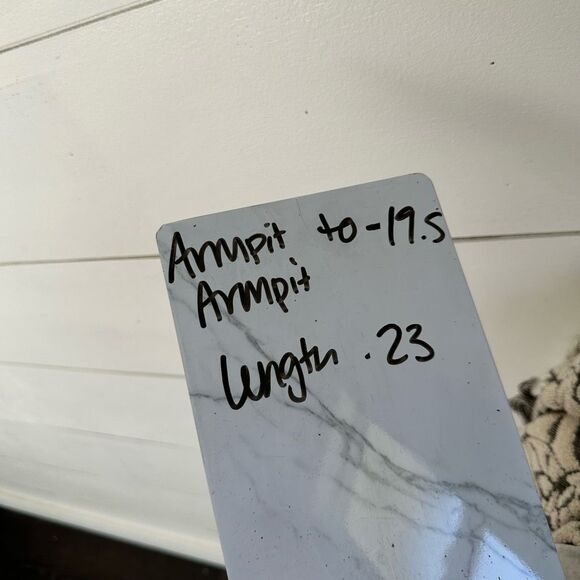 Armpit to -19.5
Armpit
length . 23